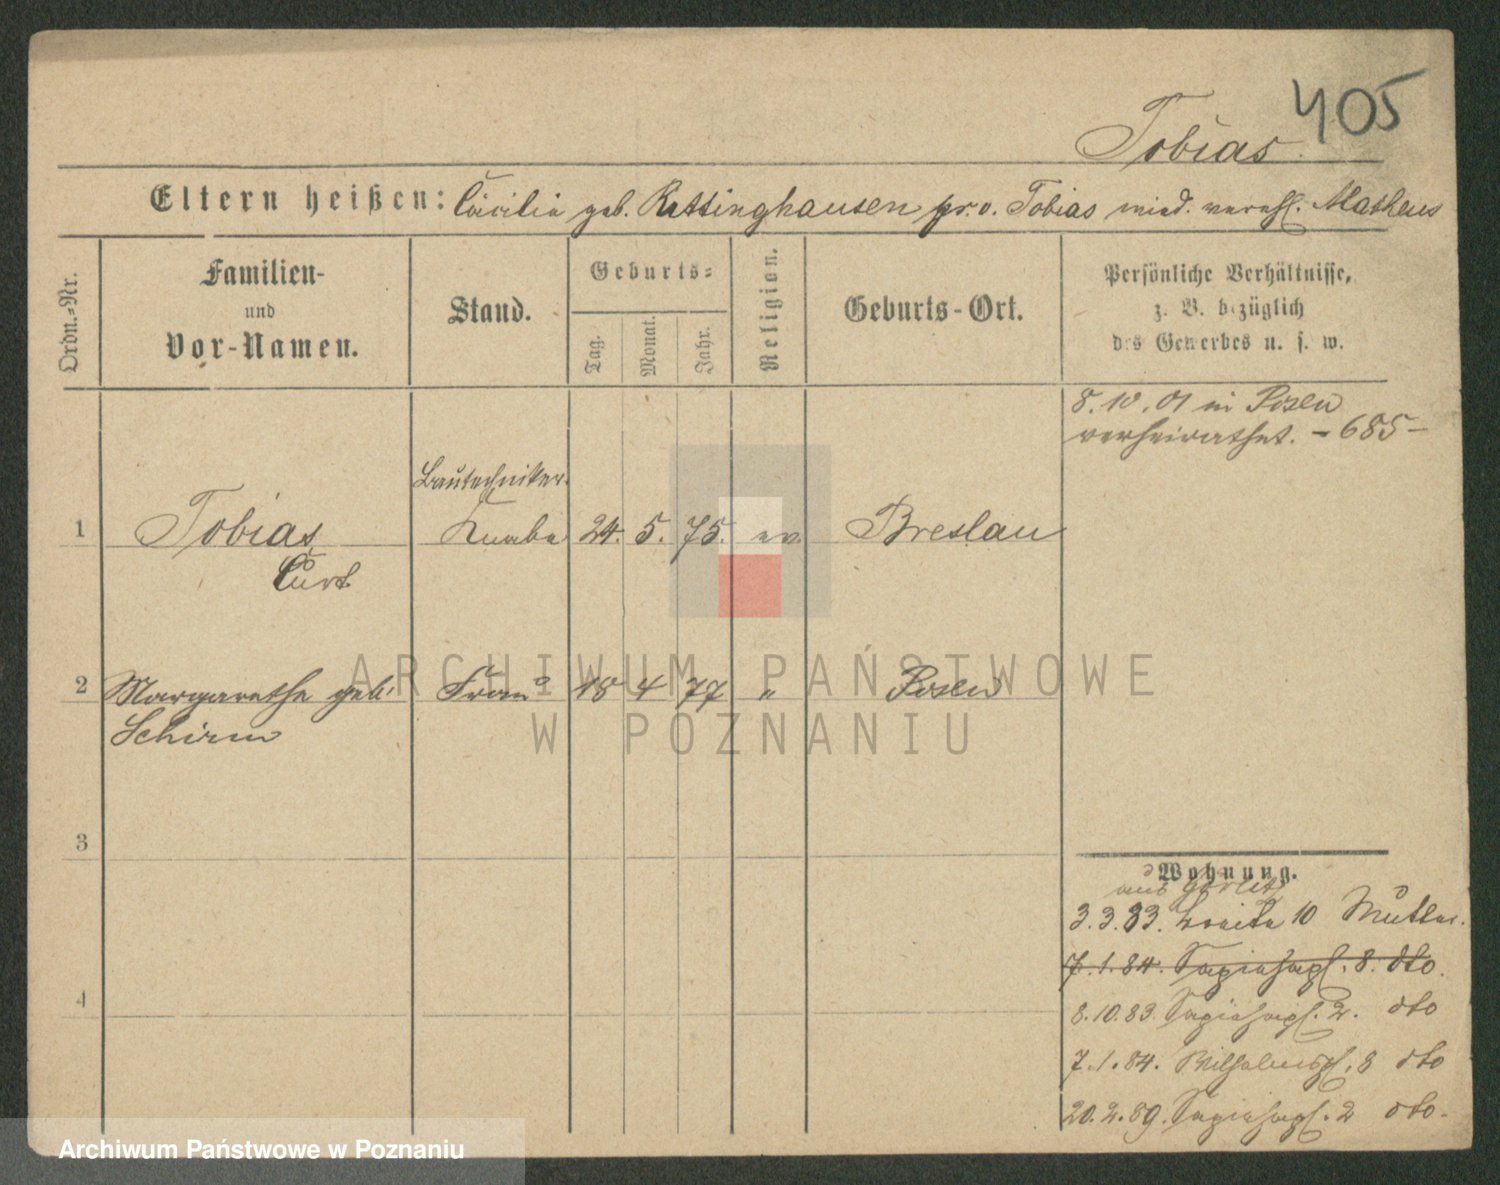 405
Tobias.
Eltern heißen: Cäcilie geb. Rettinghausen pr. v. Tobias wied. verehl. Matheus
Ordn.-Nr.
Familien-
und
Vor-Namen.
Stand.
Geburts-
Tag.
Monat.
Jahr.
Religion.
Geburts-Ort.
Persönliche Verhältnisse,
z. B. bezüglich
des Gewerbes u. s. w.
8.10.01 in Posen
verheirathet. - 685 -
Bautechniker
1 Tobias Knabe 24. 5. 75. ev. Breslau
Curt
2 Margarethe geb. Frau 18 4 77 " Posen
Schirm
3
4
Wohnung.
aus Görlitz
3.3.83. Breite 10 Mutter.
7.1.84. Sapiehapl. 8. dto.
8.10.83. Sapiehapl. 2. dto
7.1.84. Wilhelmspl. 8 dto
20.2.89. Sapiehapl. 2 dto.
ARCHIWUM PAŃSTWOWE
W POZNANIU
Archiwum Państwowe w Poznaniu